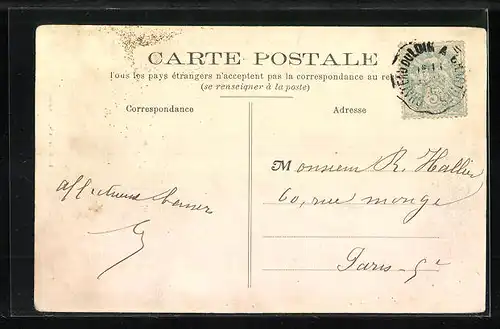 CARTE POSTALE
Tous les pays étrangers n'acceptent pas la correspondance au re
(se renseigner à la poste)
Correspondance
Adresse
affectueux baiser
Monsieur R. Hallier
60, rue monge
Paris - 5e